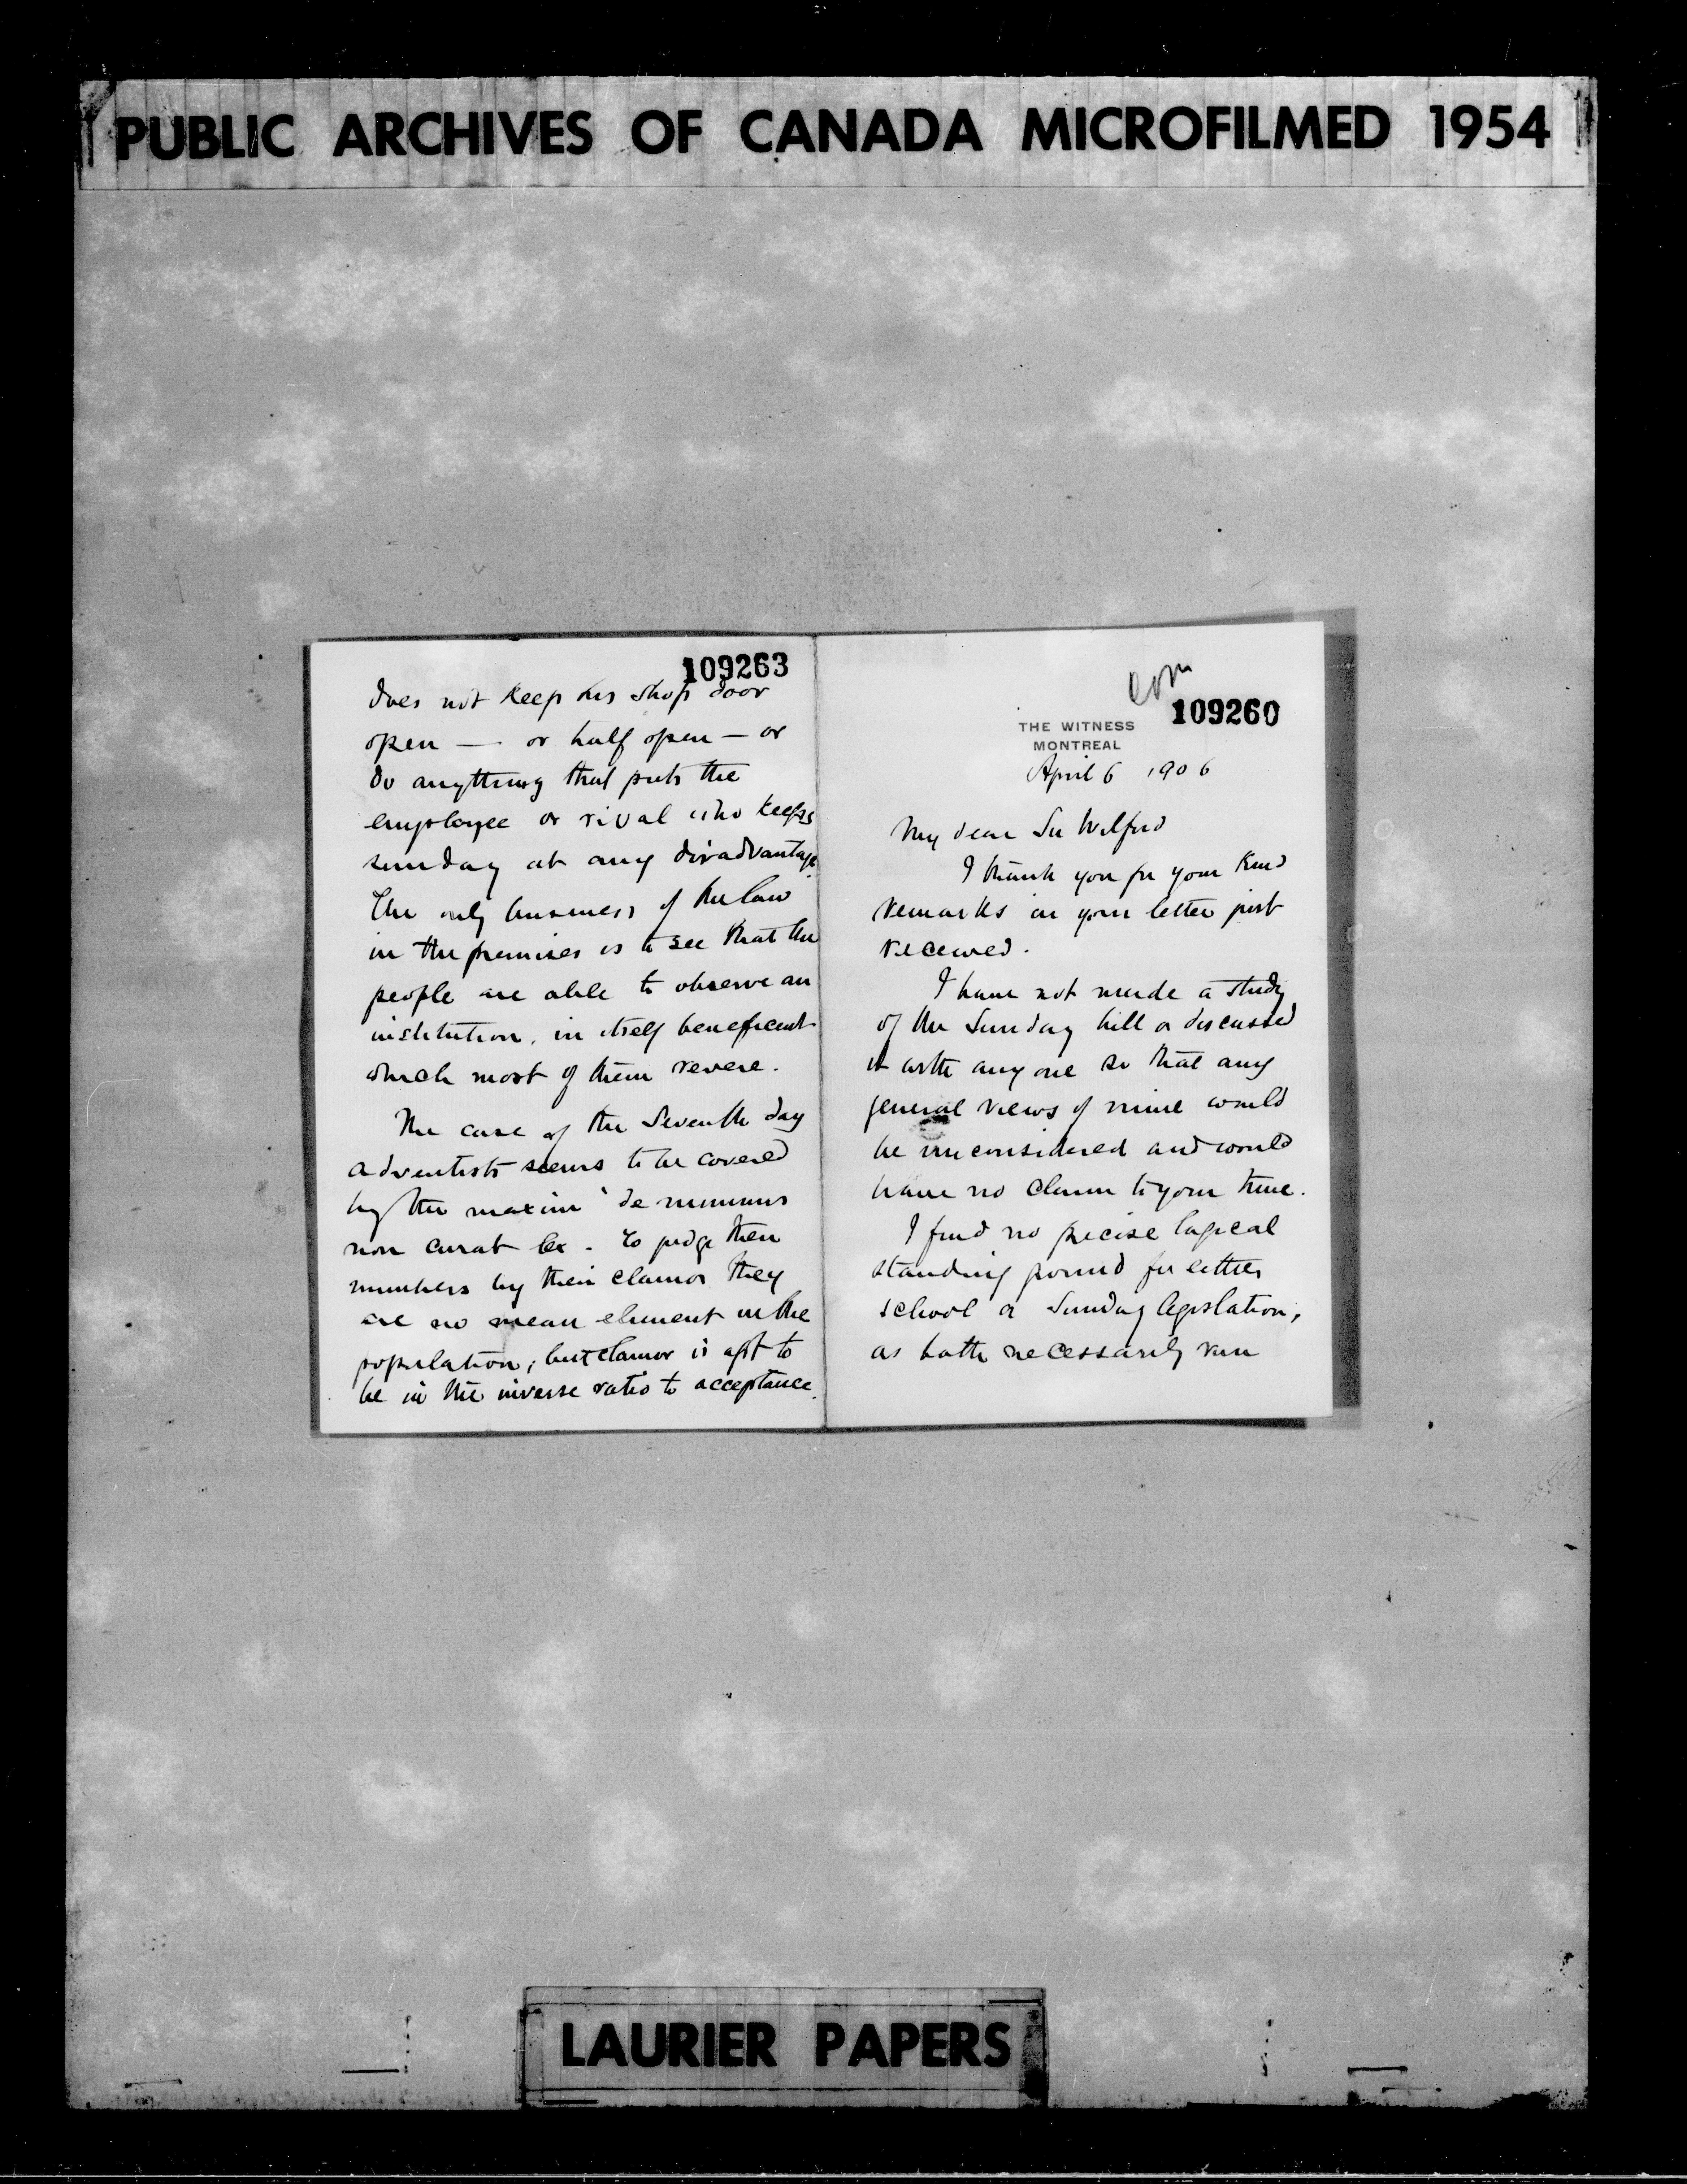 PUBLIC ARCHIVES OF CANADA MICROFILMED 1954
109263
does not keep his shop door
open — or half open — or
do anything that puts the
employee or rival who keeps
sunday at any disadvantage.
The only business of the law
in the premises is to see that the
people are able to observe an
institution, in itself beneficent
which most of them revere.
The case of the Seventh day
adventists seems to be covered
by the maxim 'de minimis
non curat lex. To judge their
numbers by their clamor they
are no mean element in the
population, but clamor is apt to
be in the inverse ratio to acceptance.
109260
THE WITNESS
MONTREAL
April 6 1906
My dear Sir Wilfrid
I thank you for your kind
remarks in your letter just
received.
I have not made a study
of the Sunday bill or discussed
it with any one so that any
general views of mine would
be unconsidered and would
have no claim to your time.
I find no precise logical
standing ground for either
school or Sunday legislation,
as both necessarily run
LAURIER PAPERS